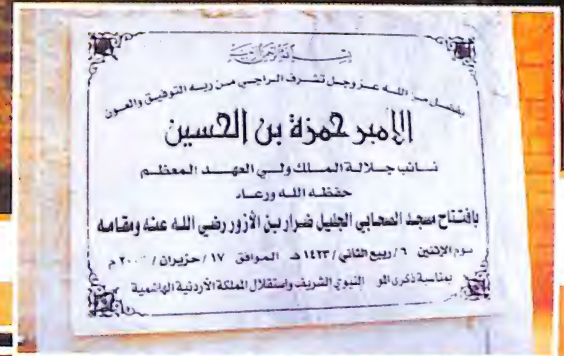 بسم الله الرحمن الرحيم
بفضل من الله عز وجل تشرف الراجي من ربه التوفيق والعون
الأمير حمزة بن الحسين
نائب جلالة الملك ولي العهد المعظم
حفظه الله ورعاه
بافتتاح مسجد الصحابي الجليل ضرار بن الأزور رضي الله عنه ومقامه
يوم الإثنين ٦/ ربيع الثاني / ١٤٢٣ هـ الموافق ١٧ / حزيران / م
بمناسبة ذكرى النبوي الشريف واستقلال المملكة الأردنية الهاشمية